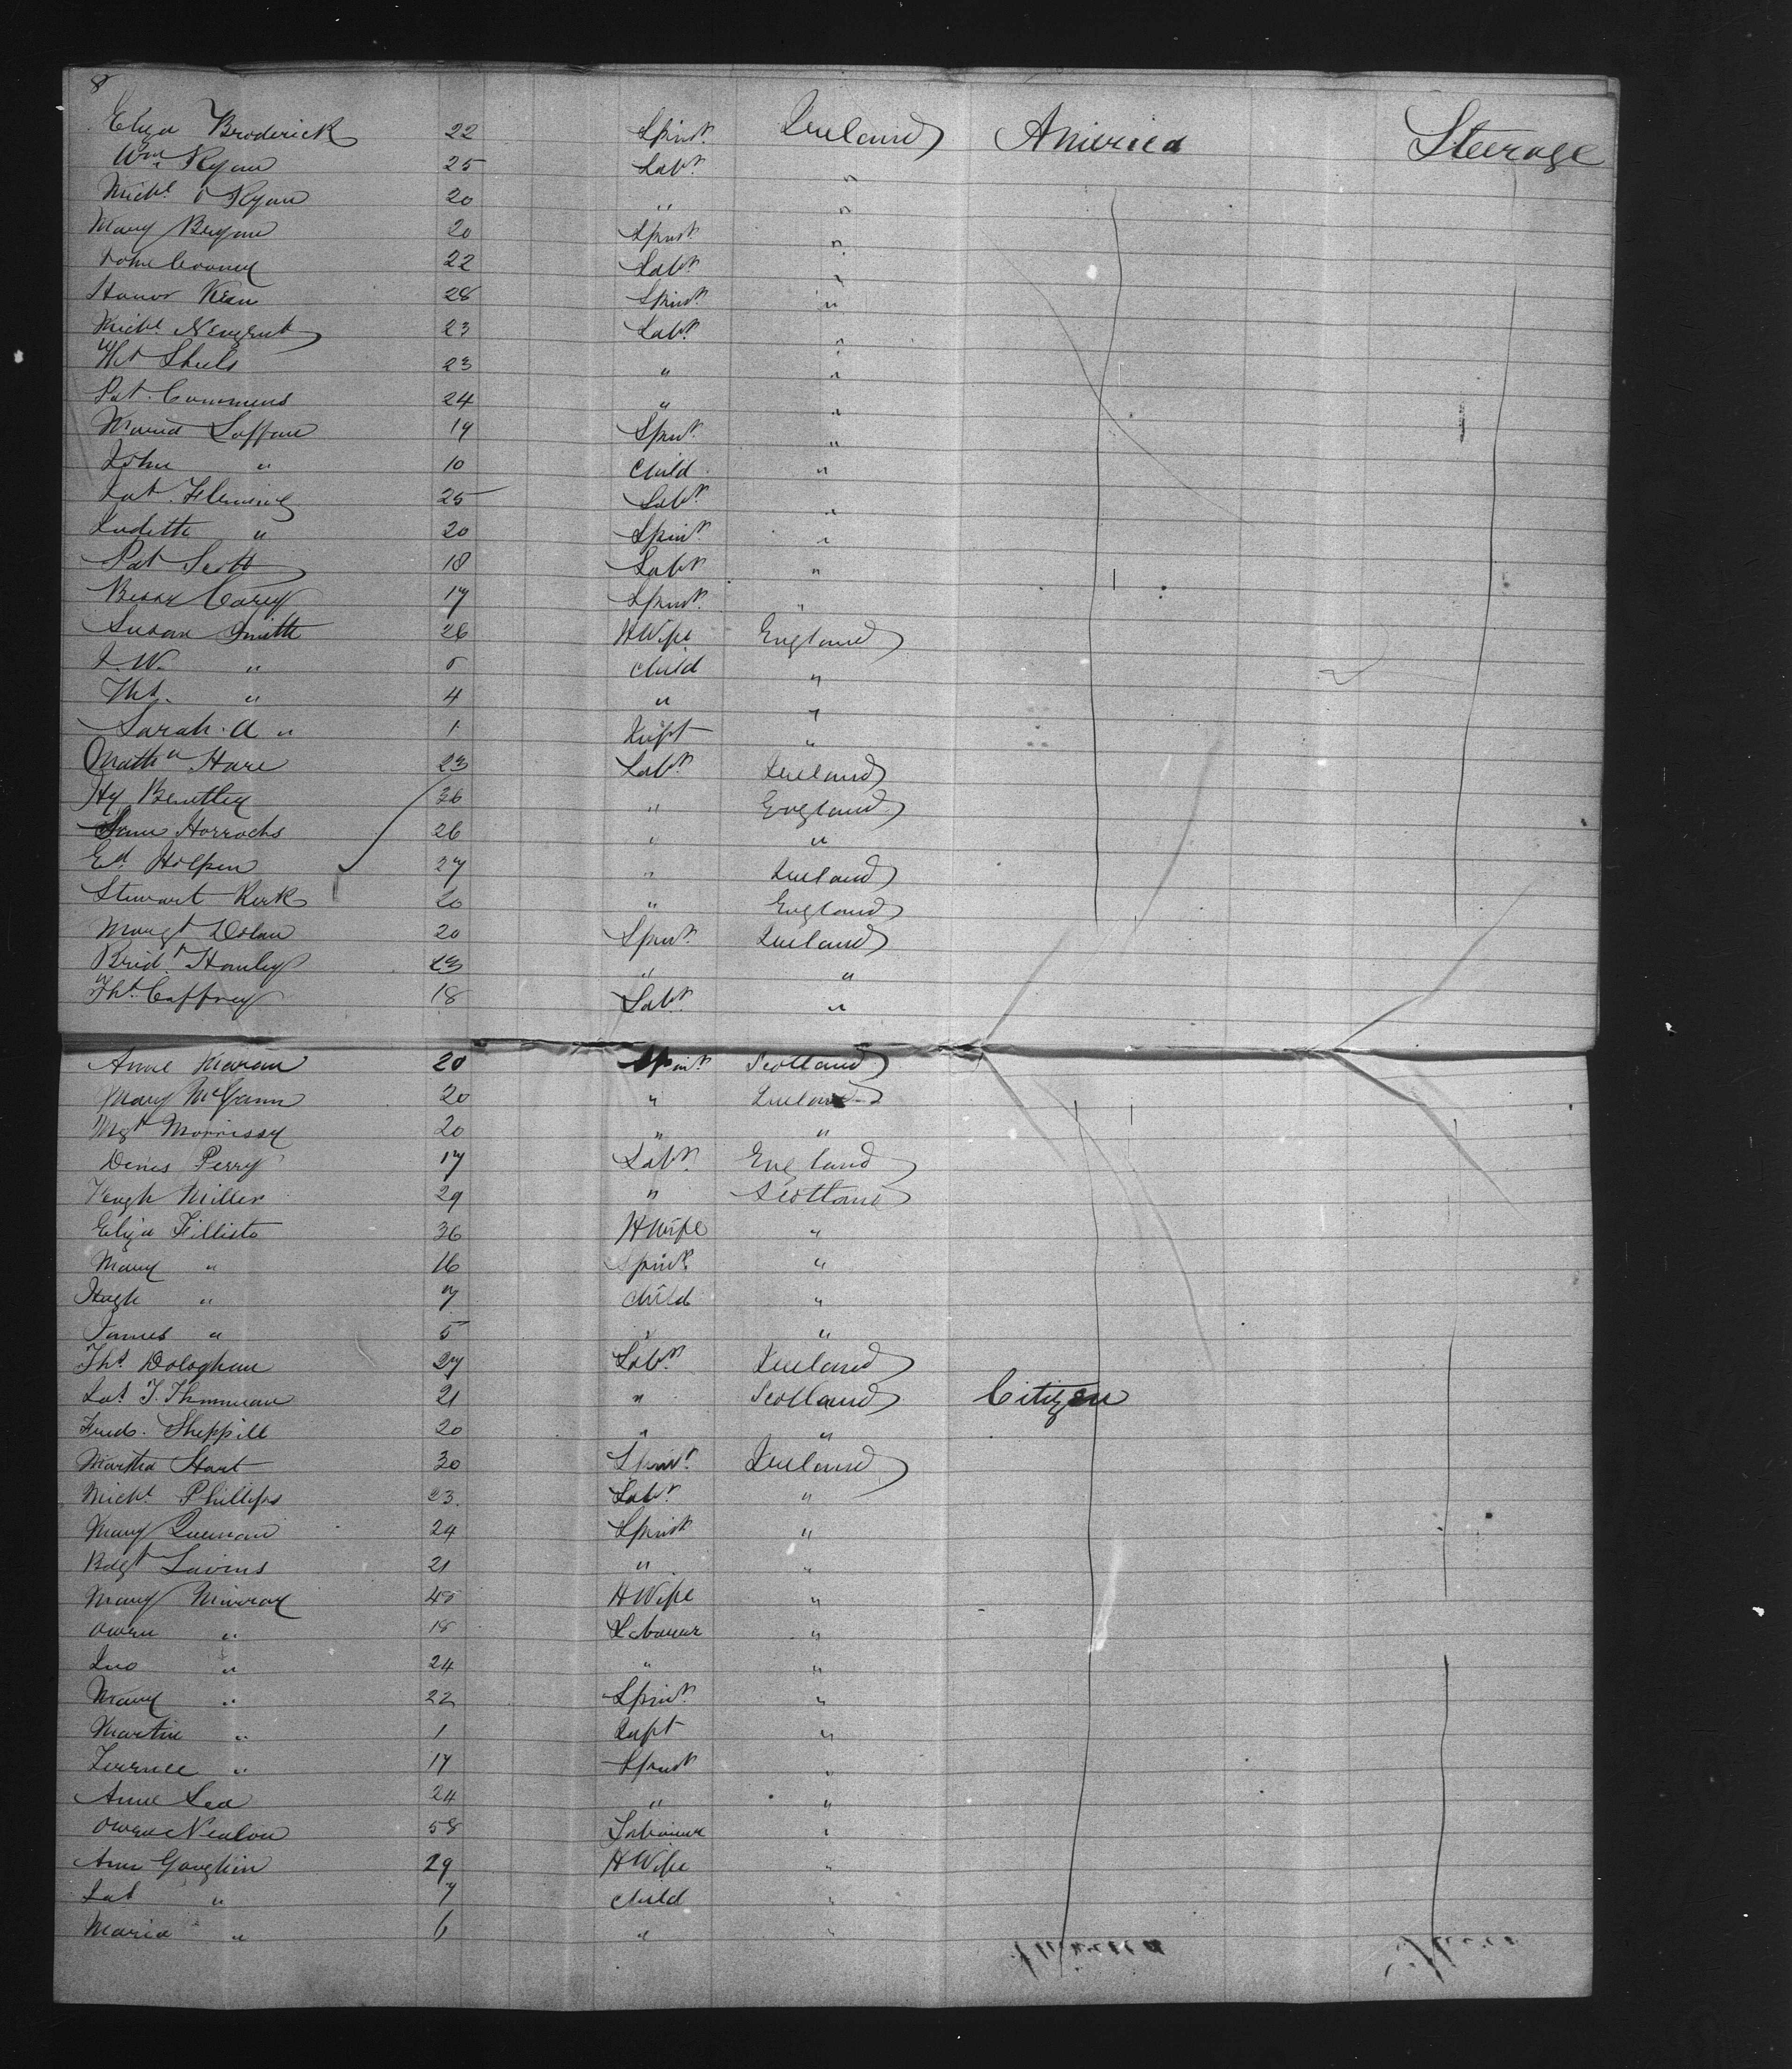 8
Eliza Broderick 22 Spinr. Ireland America Steerage
Wm Ryan 25 Labr. "
Michl Ryan 20 " "
Mary Bryan 20 Spinr. "
John Cooney 22 Labr. "
Honor Kean 28 Spinr. "
Michl 23 Labr. "
Ths Shiels 23 " "
Pat. Cummens 24 " "
Maria Laffan 19 Spinr. "
John " 10 Child "
Jas. Fleming 25 Labr. "
Judith " 20 Spinr. "
Pat Scott 18 Labr. "
Bessy Carey 17 Spinr. "
Susan Smith 26 HWife England
J. W. " Child "
Ths. " 4 " "
Sarah. A " 1 Inft "
Mathw Hare 23 Labr. Ireland
Hy Bentley 36 " England
Sam Horrocks 26 " "
Ed. Holpen 27 " Ireland
Stewart Kirk 20 " England
Margt Dolan 20 Spinr. Ireland
Bridt. Hanley 23 " "
Ths. Caffrey 18 Labr. "
Anne Maran 20 Spinr. Scotland
Mary McGann 20 " Ireland
Mgt Morrissy 20 " "
Denis Perry 17 Labr. England
Hugh Miller 29 " Scotland
Eliza Fillisto 36 HWife "
Mary " 16 Spinr. "
Hugh " 7 Child "
James " 5 " "
Ths. Dologhan 27 Labr. Ireland
Jas. T. 21 " Scotland Citizen
Fred. Sheppill 20 " "
Martha Hart 30 Spinr. Ireland
Michl. Phillips 23 Labr. "
Mary 24 Spinr. "
Bdgt Lavins 21 " "
Mary Murray 45 HWife "
Owen " 18 Labourer "
Jno " 24 " "
Mary " 22 Spinr. "
Martin " 1 Inft "
" 17 Spinr. "
Anne Lea 24 " "
Owen Nealon 58 Labourer "
Ann Gaughin 29 HWife "
Jas " 7 Child "
Maria " 6 " "